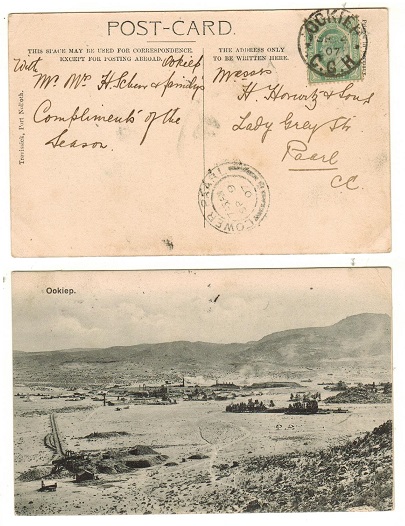 POST-CARD.
THIS SPACE MAY BE USED FOR CORRESPONDENCE
EXCEPT FOR POSTING ABROAD.
THE ADDRESS ONLY
TO BE WRITTEN HERE.
Ookiep
With
Mr Mrs H. & family's
Compliments of the
Season.
Messrs
H. Horwitz & Sons
Lady Grey Str
Paarl
CC.
OOKIEP
07
C.G.H
LOWER PAARL
07
Travinsek, Port Nolloth.
Ookiep.